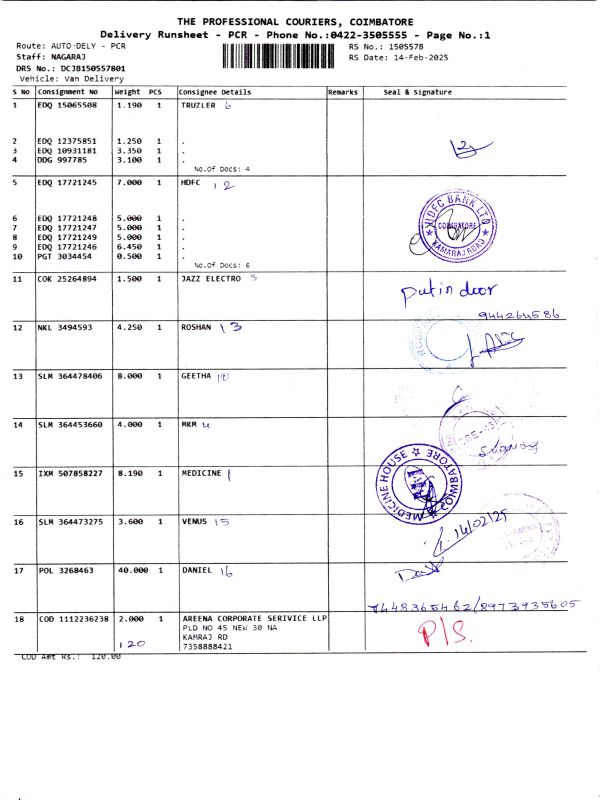 THE PROFESSIONAL COURIERS, COIMBATORE
Delivery Runsheet - PCR - Phone No.:0422-3505555 - Page No.:1
Route: AUTO-DELY - PCR RS No.: 1505578
Staff: NAGARAJ RS Date: 14-Feb-2025
DRS No.: DCJB150557801
Vehicle: Van Delivery
S No Consignment No Weight PCS Consignee Details Remarks Seal & Signature
1 EDQ 15065508 1.190 1 TRUZLER 6
2 EDQ 12375851 1.250 1 .
3 EDQ 10931181 3.350 1 .
4 DDG 997785 3.100 1 .
No.Of Docs: 4
5 EDQ 17721245 7.000 1 HDFC 12
HDFC BANK LTD
COIMBATORE
KAMARAJ ROAD
6 EDQ 17721248 5.000 1 .
7 EDQ 17721247 5.000 1 .
8 EDQ 17721249 5.000 1 .
9 EDQ 17721246 6.450 1 .
10 PGT 3034454 0.500 1 .
No.Of Docs: 6
11 COK 25264894 1.500 1 JAZZ ELECTRO
put in door
944264586
12 NKL 3494593 4.250 1 ROSHAN 13
13 SLM 364478406 8.000 1 GEETHA 10
14 SLM 364453660 4.000 1 MKM 4
15 IXM 507858227 8.190 1 MEDICINE 1
MEDICINE HOUSE
COIMBATORE
16 SLM 364473275 3.600 1 VENUS 15
14/02/25
17 POL 3268463 40.000 1 DANIEL 16
7448365462/8973935605
18 COD 1112236238 2.000 1 AREENA CORPORATE SERIVICE LLP
PLD NO 45 NEW 30 NA
KAMRAJ RD
120 7358888421
P/S.
COD Amt Rs.: 120.00